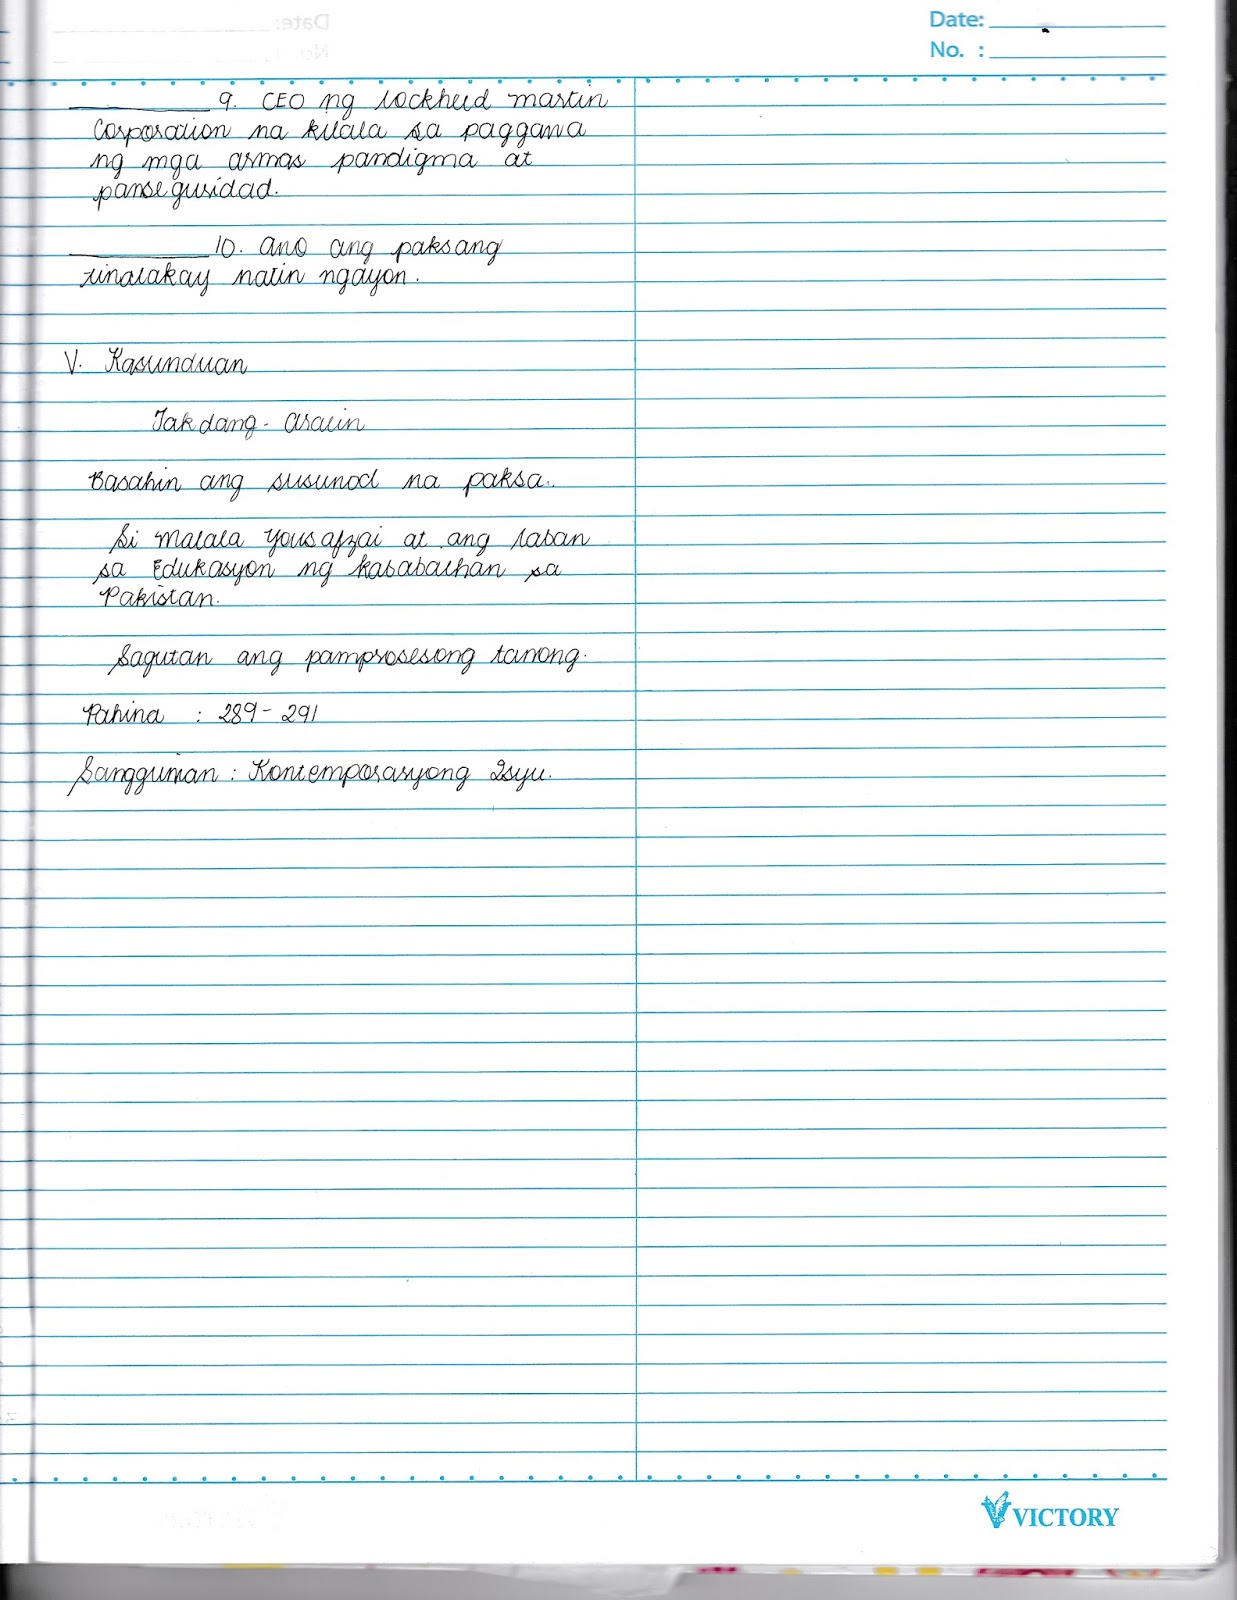 Date:
No. :
9. CEO ng Lockheed martin
Corporation na kilala sa paggawa
ng mga armas pandigma at
panseguridad.
10. Ano ang paksang
tinalakay natin ngayon.
V. Kasunduan
Takdang-Aralin
Basahin ang susunod na paksa.
Si Malala Yousafzai at ang laban
sa Edukasyon ng kababaihan sa
Pakistan.
Sagutan ang pamprosesong tanong.
Pahina : 289-291
Sanggunian : Kontemporaryong Isyu.
VICTORY